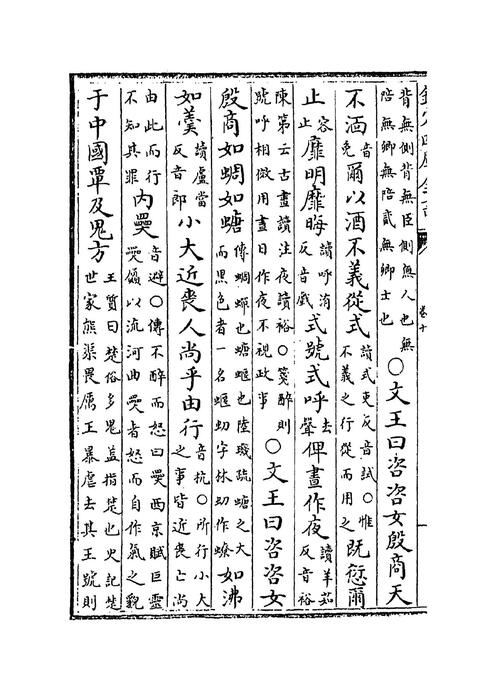 卷十
背無側背無臣側無人也無
陪無卿無陪貳無卿士也
〇文王曰咨咨女殷商天
不湎音免爾以酒不義從式讀式吏反音試〇惟不義之行從而用之既愆爾
止容止靡明靡晦讀呼洧反音戲式號式呼去聲俾晝作夜讀羊茹反音裕
陳第云古晝讀注夜讀裕〇箋醉則號呼相傚用晝日作夜不視政事〇文王曰咨咨女
殷商如蜩如螗傳蜩蟬也螗蝘也陸璣疏螗之大而黑色者一名蝘虭字林虭作蟟如沸
如羹讀盧當反音郎小大近喪人尚乎由行音杭〇所行小大之事皆近喪亡尚
由此而行不知其罪內奰音避〇傳不醉而怒曰奰西京賦巨靈奰屭以流河曲奰者怒而自作氣之貌
于中國覃及鬼方王質曰楚俗多鬼蓋指楚也史記楚世家熊渠畏厲王暴虐去其王號則